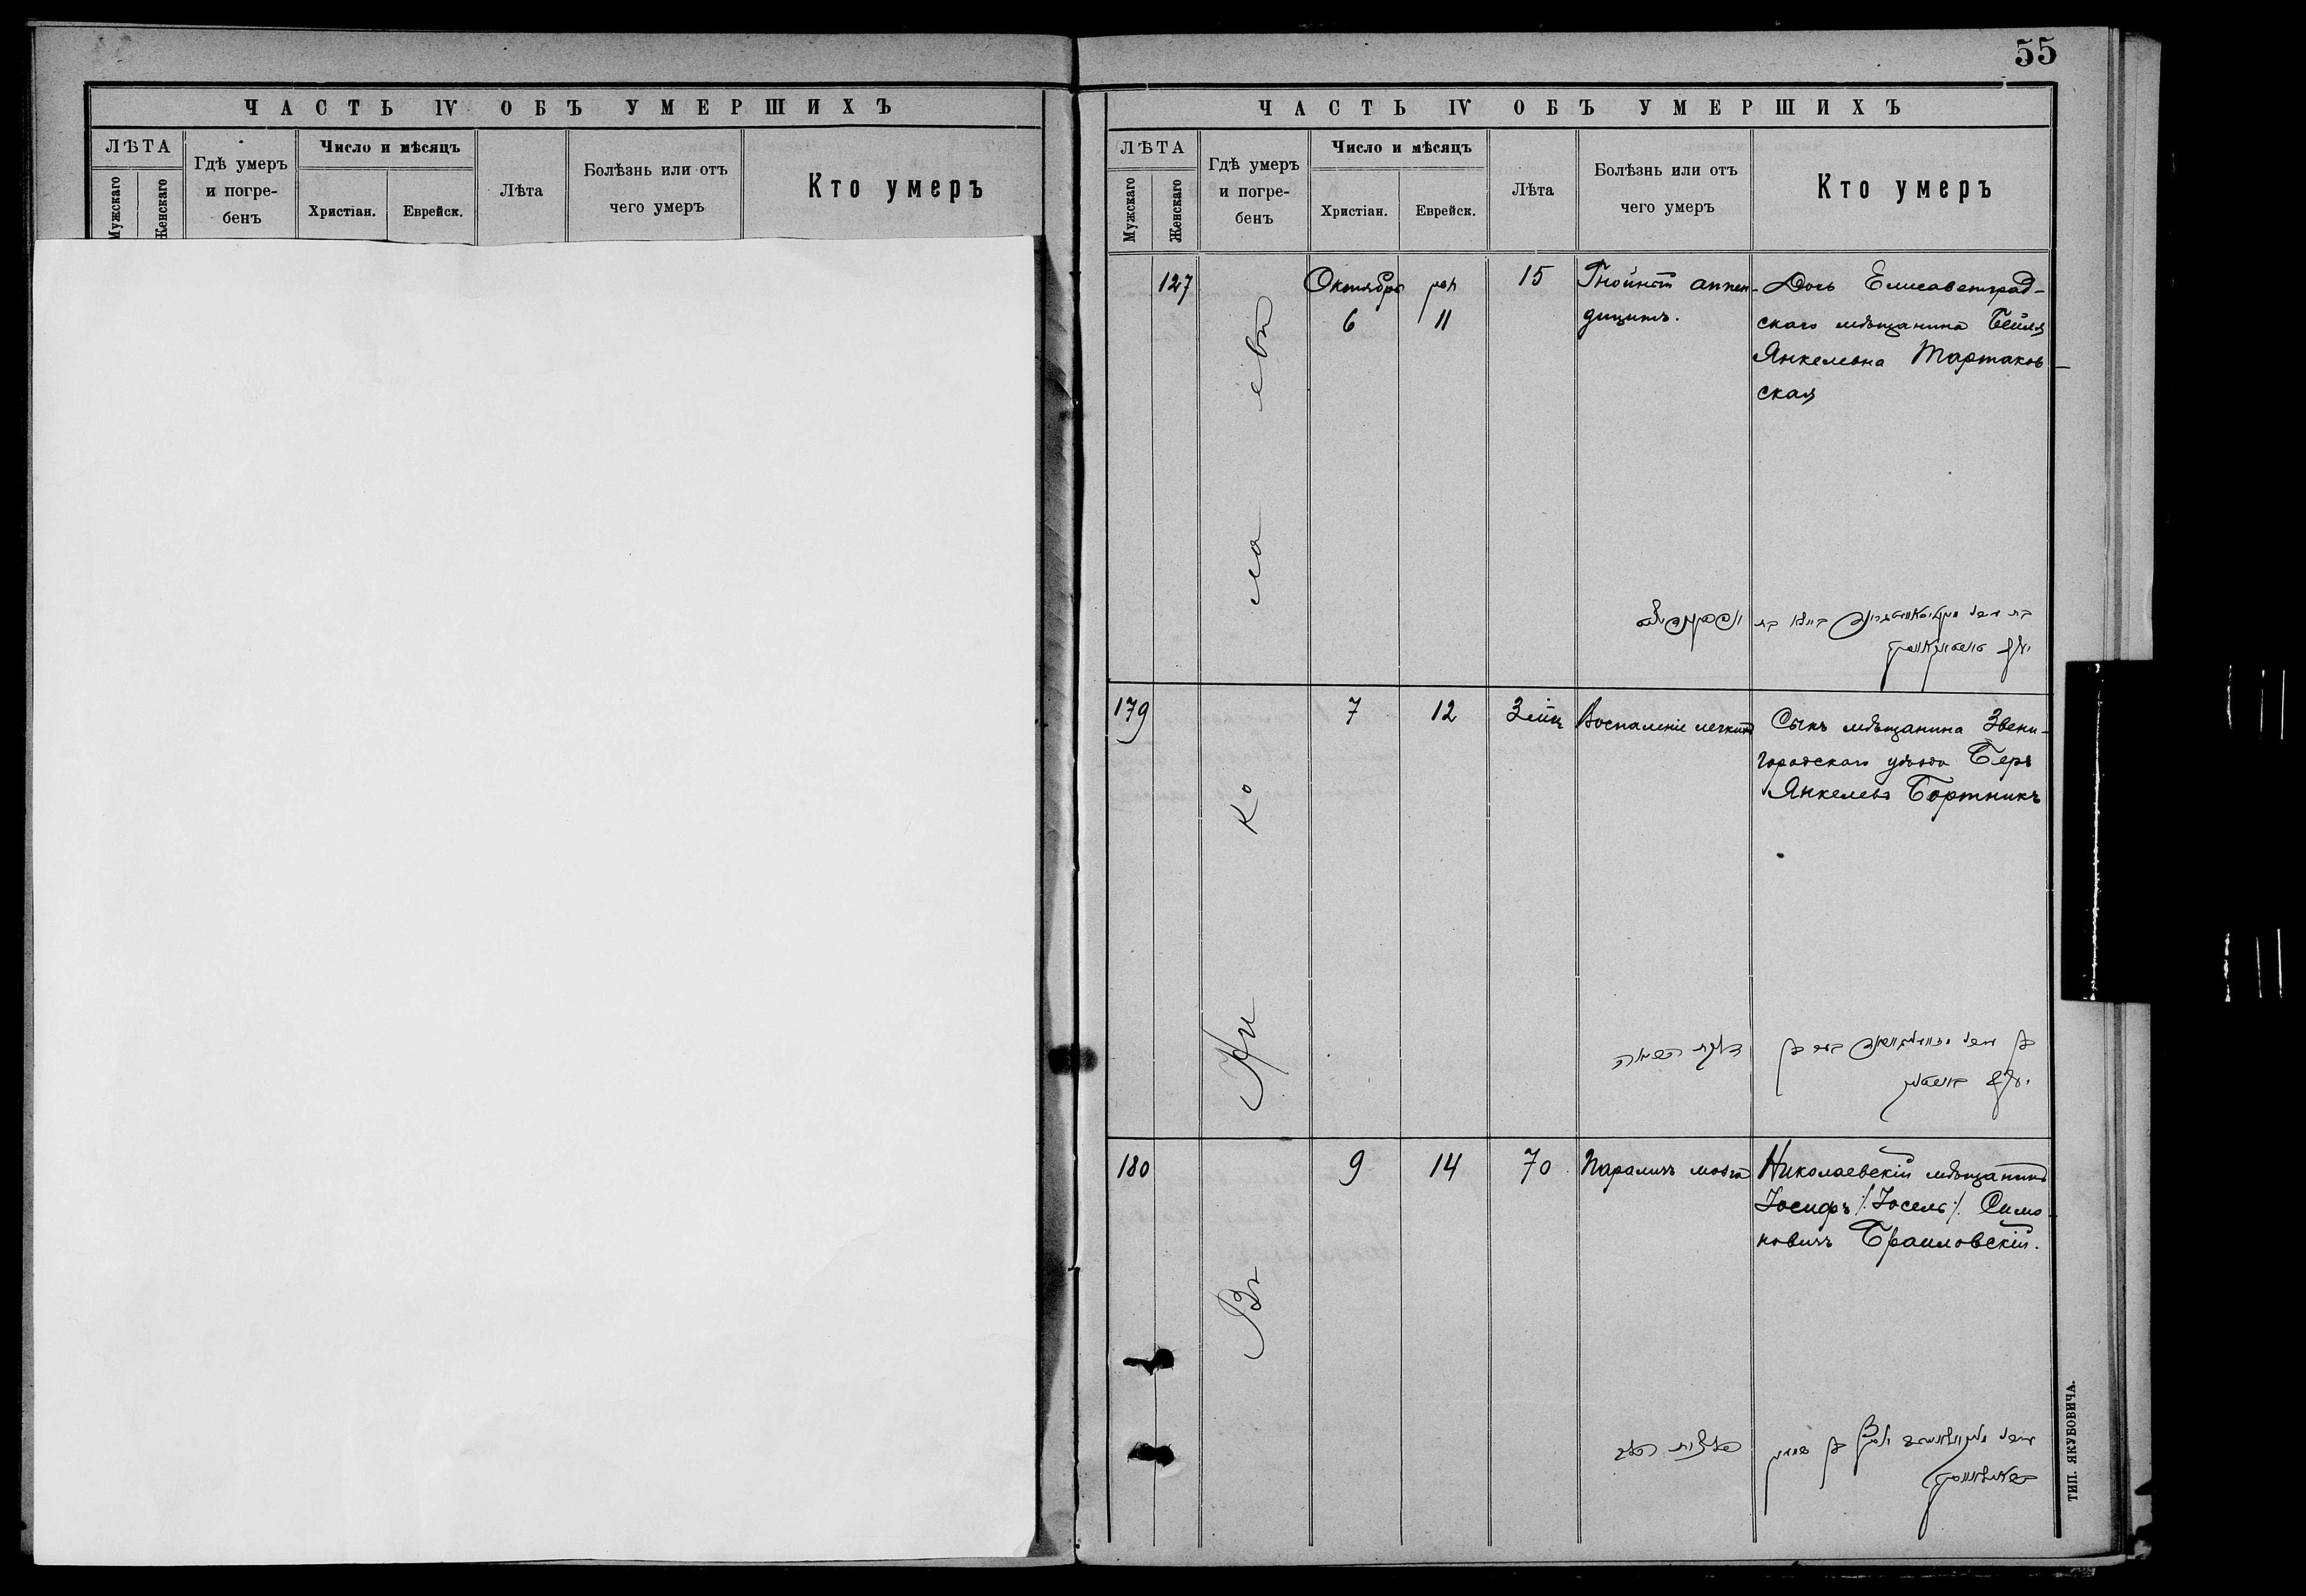 55
ЧАСТЬ IV ОБЪ УМЕРШИХЪ
ЛѢТА
Мужскаго
Женскаго
Гдѣ умеръ
и погре-
бенъ
Число и мѣсяцъ
Христіан.
Еврейск.
Лѣта
Болѣзнь или отъ
чего умеръ
Кто умеръ
ЧАСТЬ IV ОБЪ УМЕРШИХЪ
ЛѢТА
Мужскаго
Женскаго
Гдѣ умеръ
и погре-
бенъ
Число и мѣсяцъ
Христіан.
Еврейск.
Лѣта
Болѣзнь или отъ
чего умеръ
Кто умеръ
Въ Николаевѣ
127
Октября
6
11
15
Гнойный аппен-
дицитъ.
Дочь Елисаветград-
скаго мѣщанина Бейля
Янкелевна Тартаков-
ская
179
7
12
3 мѣс
Воспаленіе легкихъ
Сынъ мѣщанина Звени-
городскаго уѣзда Беръ
Янкелевъ Бортникъ
דלקת הריאה
180
9
14
70
Параличъ мозга
Николаевскій мѣщанинъ
Іосифъ /:Іосель:/ Симо-
новичъ Браиловскій.
ТИП. ЯКУБОВИЧА.